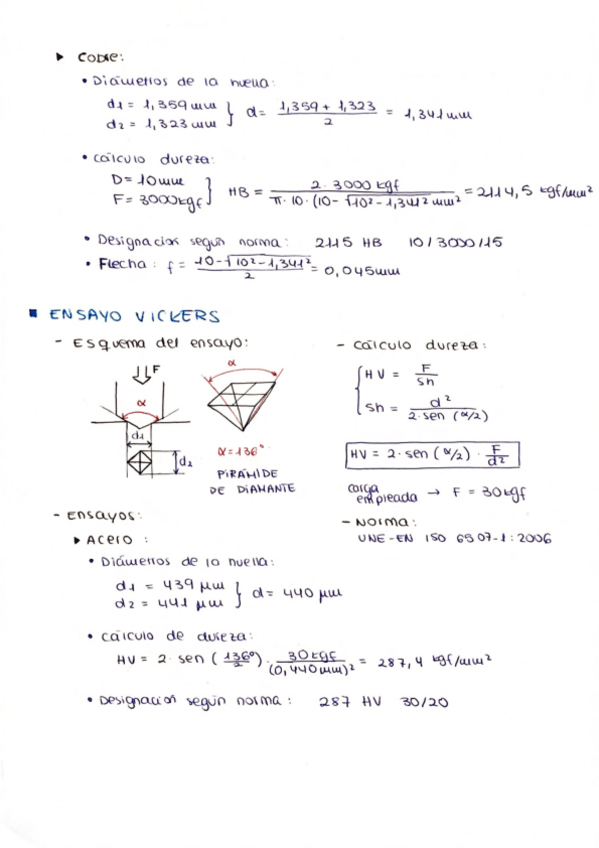 ▶ Cobre:
• Diámetros de la huella:
d1 = 1,359 mm
d2 = 1,323 mm } d = (1,359 + 1,323)/2 = 1,341 mm
• Cálculo dureza:
D = 10 mm
F = 3000 kgf } HB = 2·3000 kgf / (π·10·(10 - √10² - 1,341² mm²) = 2114,5 kgf/mm²
• Designación según norma: 2115 HB 10/3000/15
• Flecha: f = (10 - √10² - 1,341²)/2 = 0,045 mm
■ ENSAYO VICKERS
- Esquema del ensayo:
F
α
d1
d2
α
α = 136°
PIRÁMIDE
DE DIAMANTE
- Cálculo dureza:
HV = F/Sh
Sh = d²/(2·sen (α/2))
HV = 2·sen (α/2) · F/d²
carga
empleada → F = 30 kgf
- Norma:
UNE-EN ISO 6507-1:2006
- Ensayos:
▶ Acero:
• Diámetros de la huella:
d1 = 439 μm
d2 = 441 μm } d = 440 μm
• Cálculo de dureza:
HV = 2·sen (136°/2) · 30 kgf/(0,440 mm)² = 287,4 kgf/mm²
• Designación según norma: 287 HV 30/20